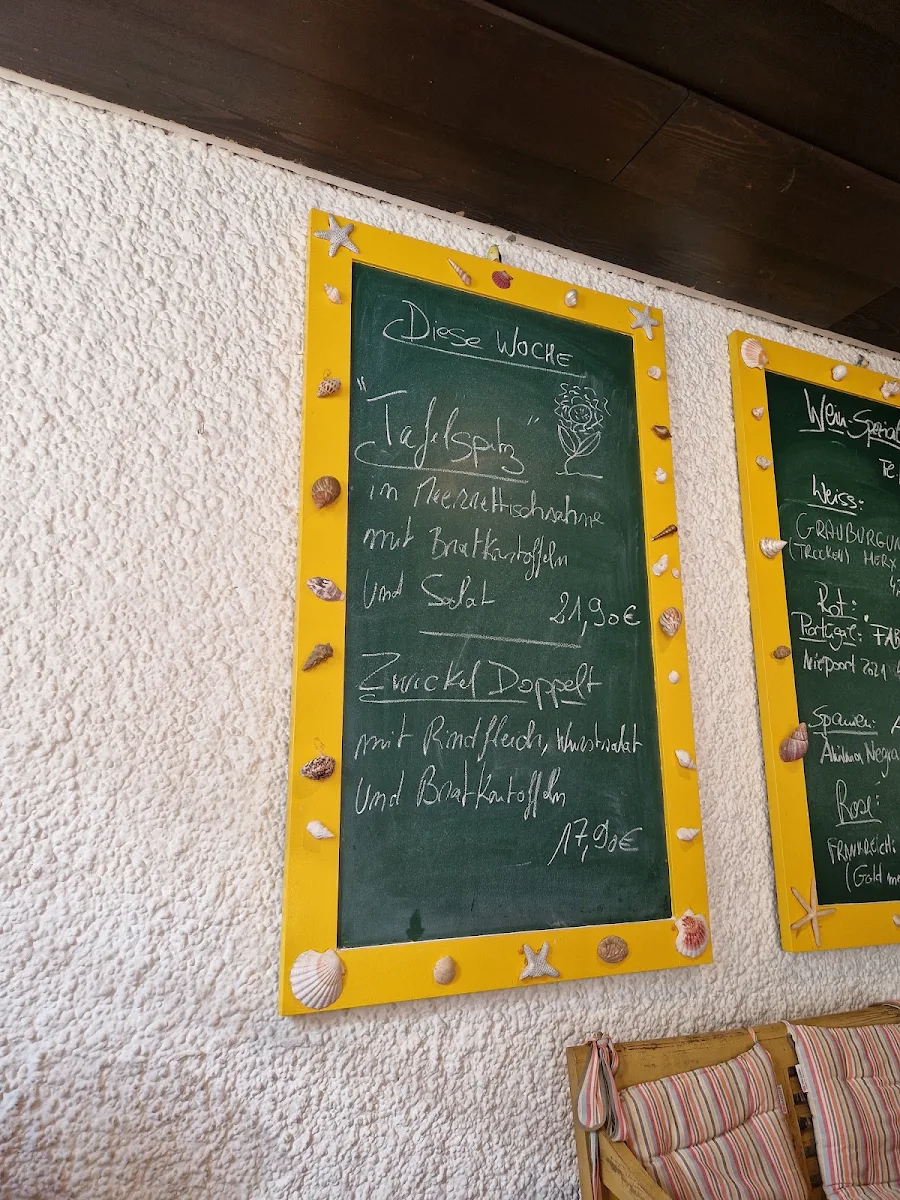 Diese Woche
"Tafelspitz"
in Meerrettischsahne
mit Bratkartoffeln
und Salat 21,90€
Zwickel Doppelt
mit Rindfleich, Wurstsalat
und Bratkartoffeln
17,90€
Wein-Spezial
Weiss:
GRAUBURGUN
(TROCKEN) HERX
Rot:
Portugal: "FAB
Niepoort 2021
Spanien:
Negra
Rose:
FRANKREICH:
(Gold me